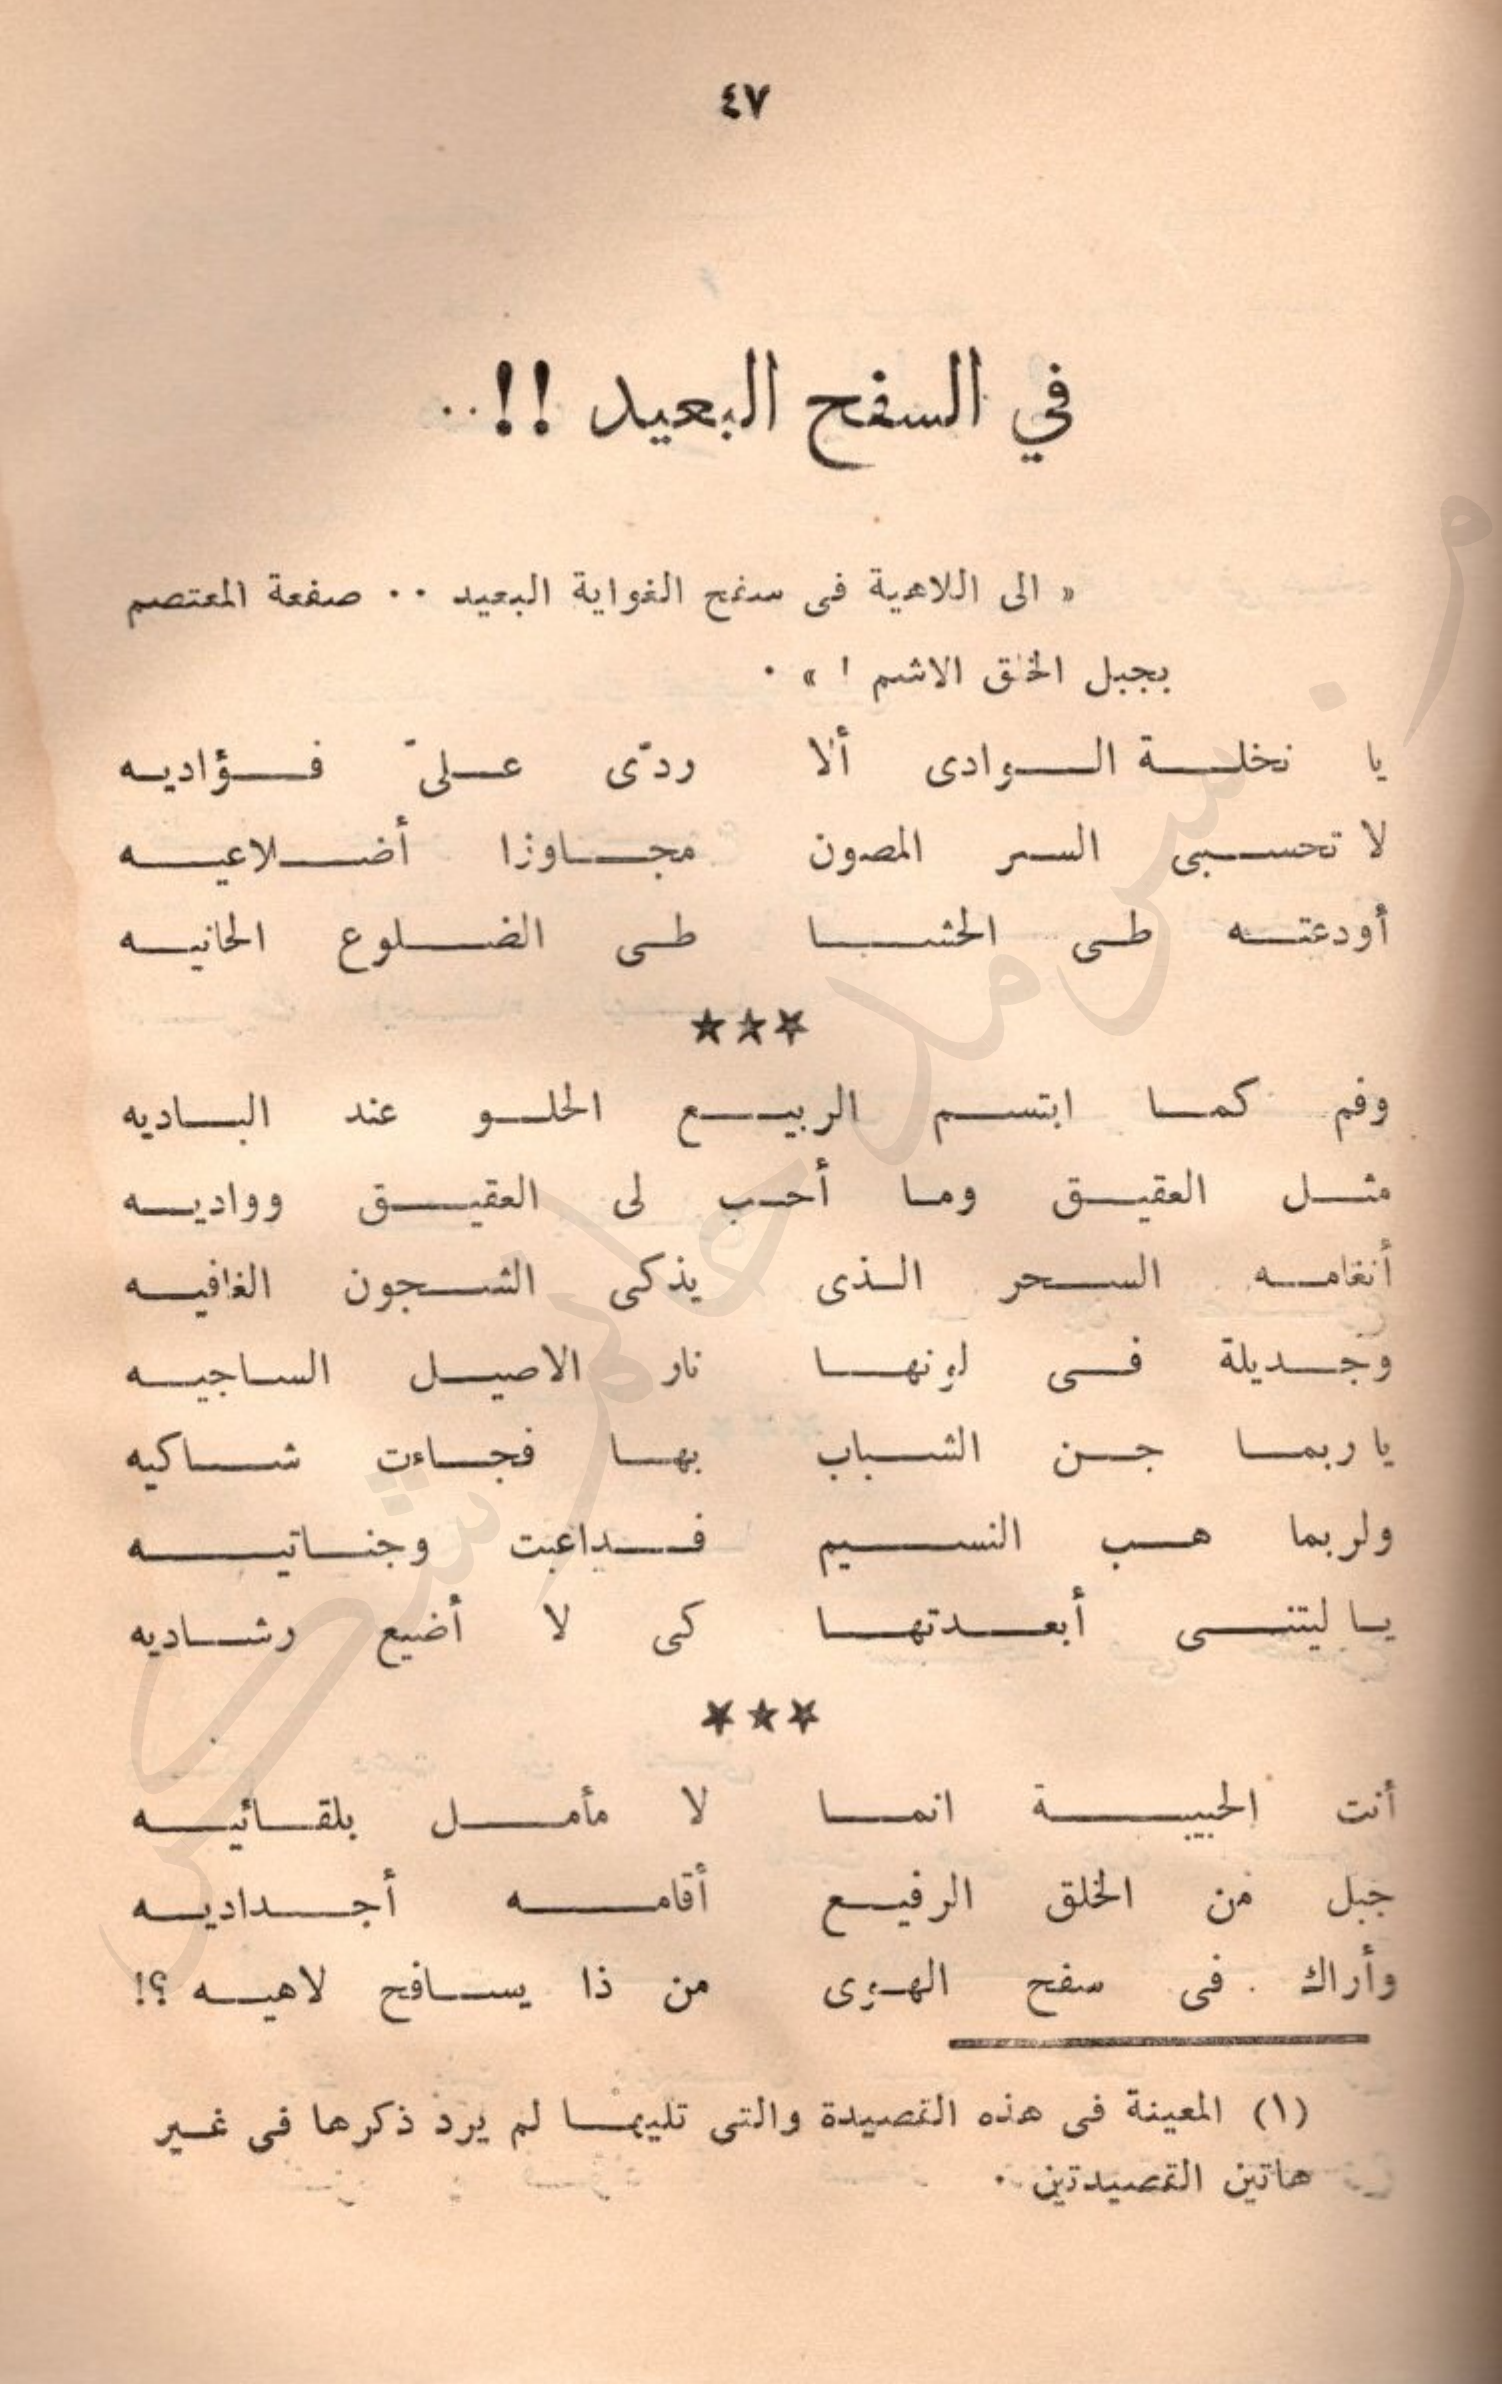 ٤٧
في السفح البعيد !!..
« الى اللاهية فى سفح الغواية البعيد .. صفعة المعتصم
بجبل الخلق الاشم ! » .
يا نخلة الوادى ألا ردّى علىّ فؤاديه
لا تحسبى السر المصون مجاوزا أضلاعيه
أودعته طى الحشا طى الضلوع الحانيه
***
وفم كما ابتسم الربيع الحلو عند الباديه
مثل العقيق وما أحب لى العقيق وواديه
أنغامه السحر الذى يذكى الشجون الغافيه
وجديلة فى لونها نار الاصيل الساجيه
يا ربما جن الشباب بها فجاءت شاكيه
ولربما هب النسيم فداعبت وجناتيه
يا ليتنى أبعدتها كى لا أضيع رشاديه
***
أنت الحبيبة انما لا مأمل بلقائيه
جبل من الخلق الرفيع أقامه أجداديه
وأراك فى سفح الهوى من ذا يسافح لاهيه ؟!
(١) المعينة فى هذه القصيدة والتى تليها لم يرد ذكرها فى غير
هاتين القصيدتين .